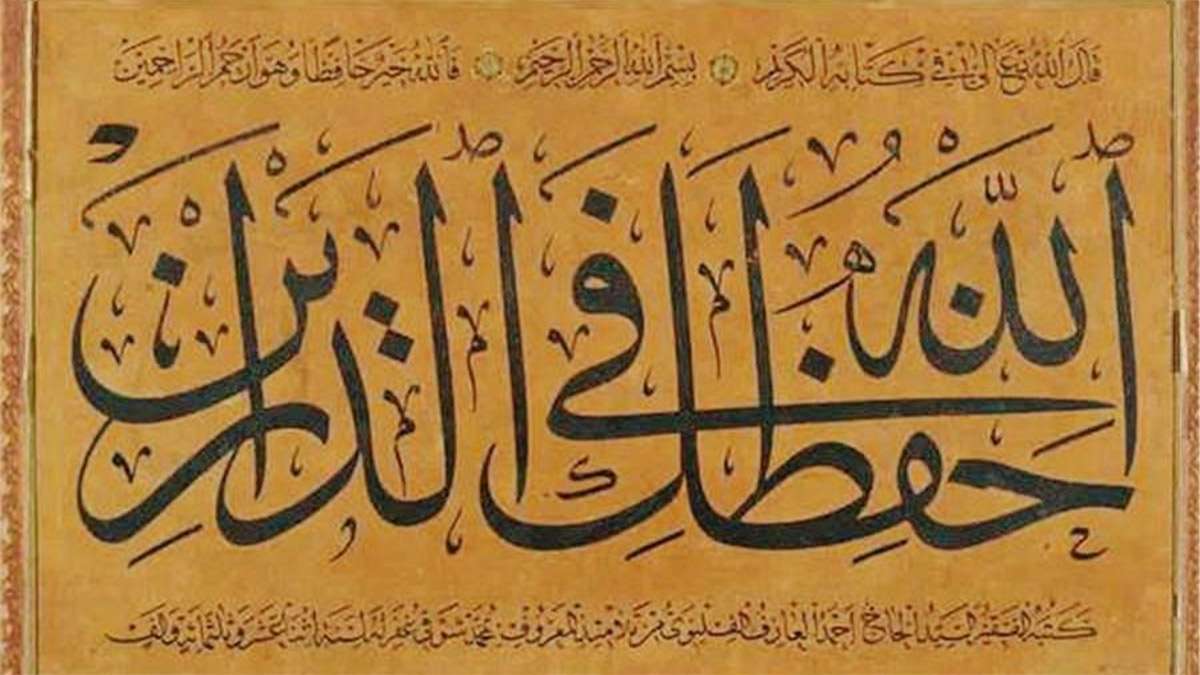 قَالَ اللهُ تَعَالَى فِي كِتَابِهِ الْكَرِيمِ بِسْمِ اللهِ الرَّحْمٰنِ الرَّحِيمِ فَاللهُ خَيْرٌ حَافِظًا وَهُوَ أَرْحَمُ الرَّاحِمِينَ
حَفِظَكَ اللهُ فِي الدَّارَيْنِ
كتبه الفقير السيد الحاج احمد العارف الفلبوى من تلاميذ المعروف محمد شوقي غفر لهما سنة اثنا عشر وثلثمائة والف